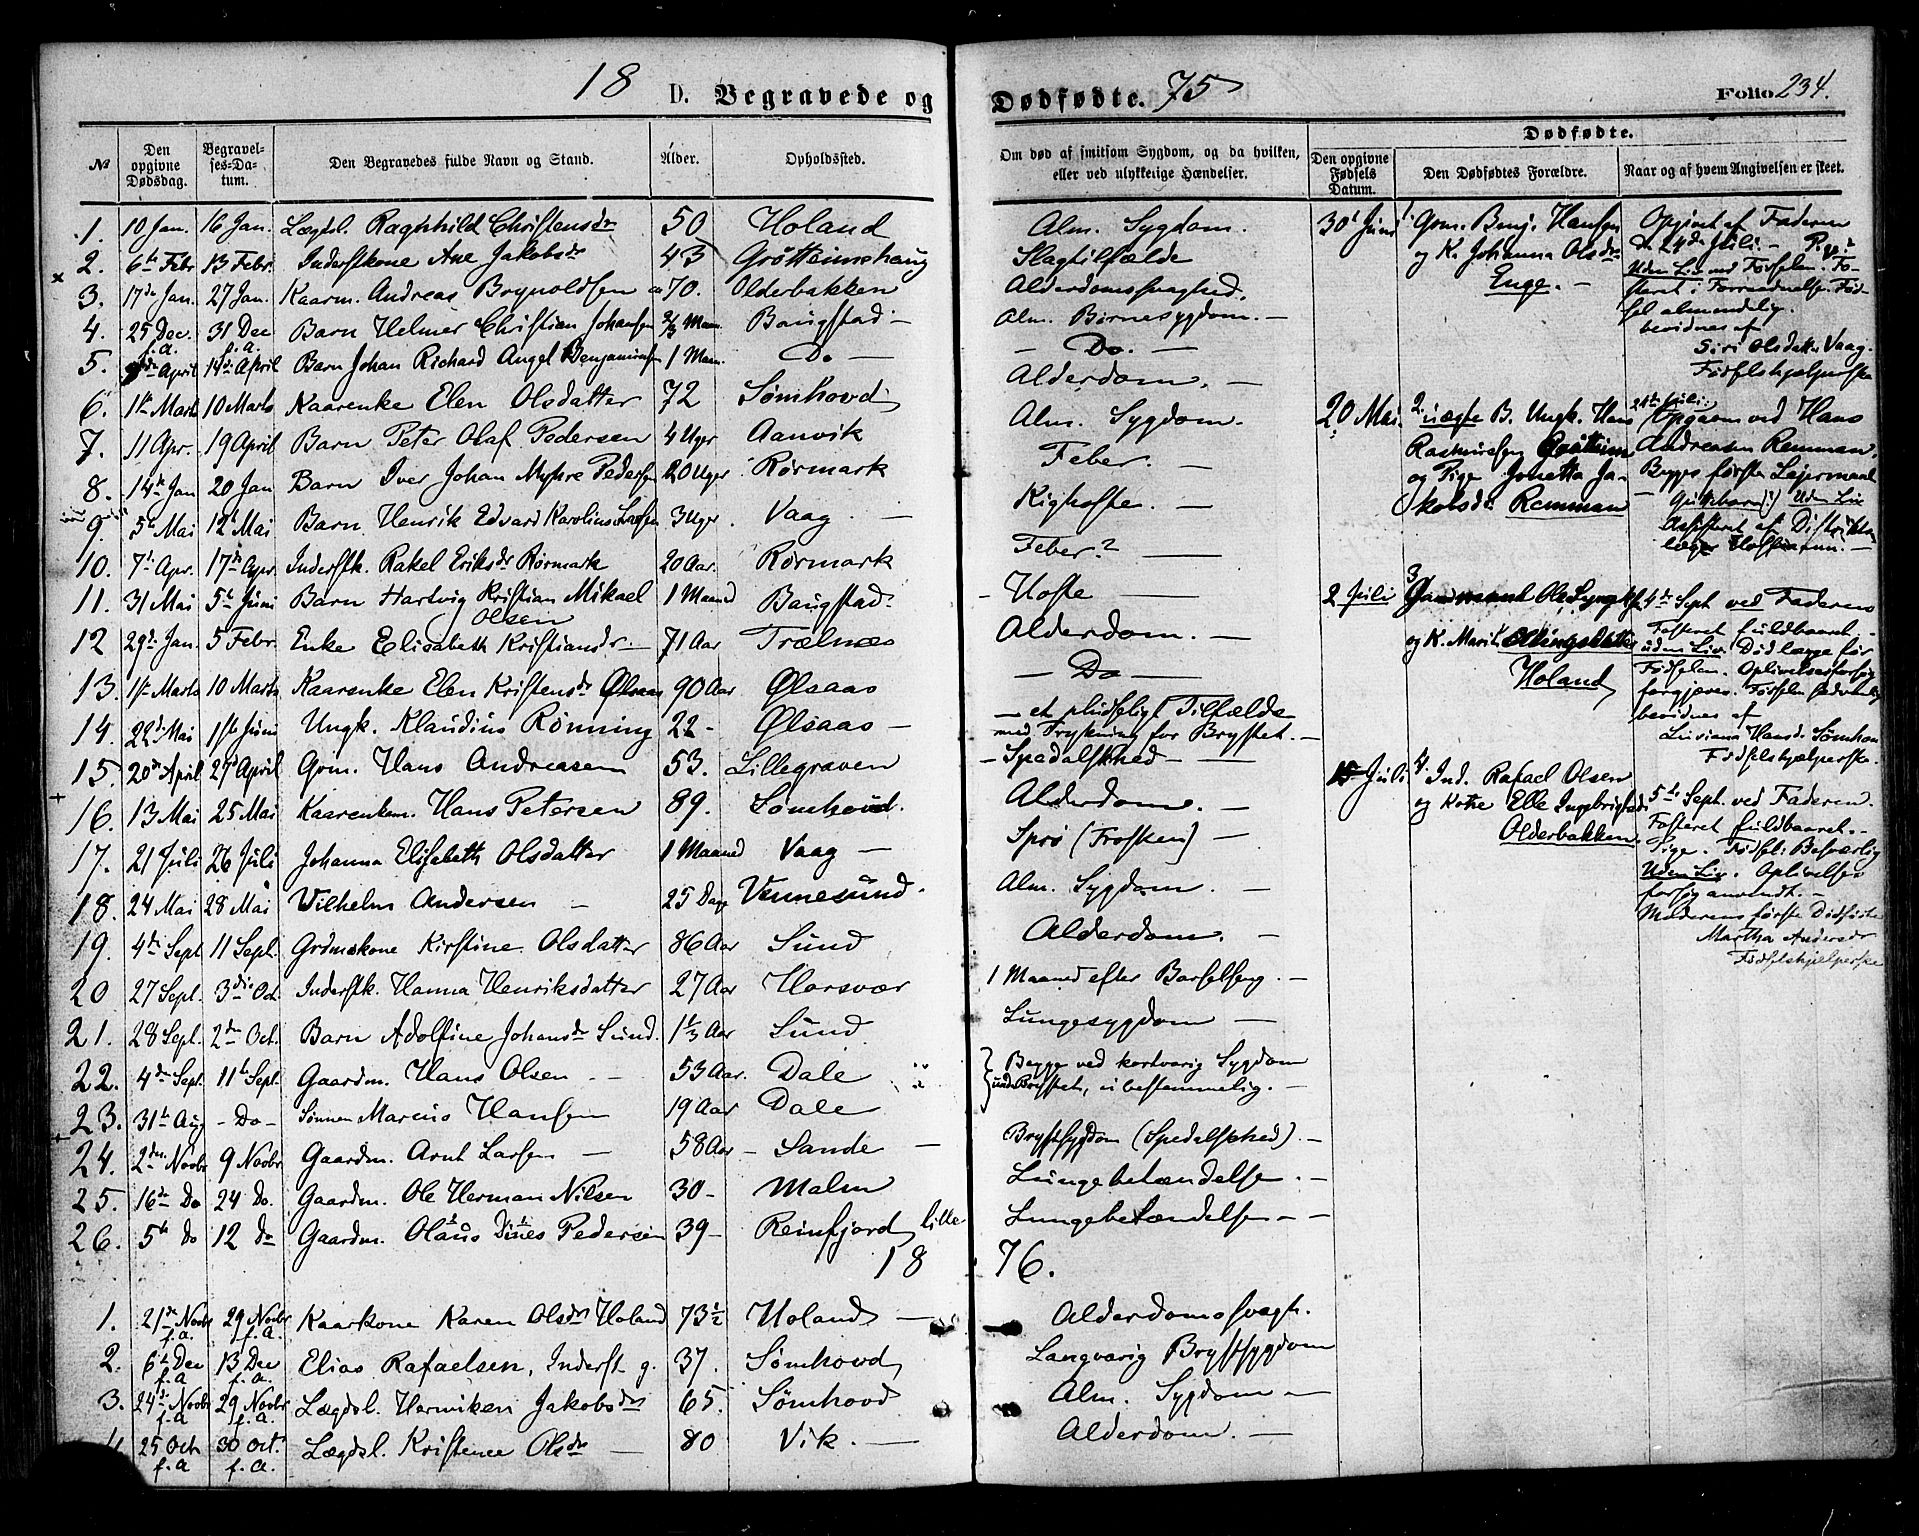 18 D. Begravede og Dødfødte. 75 Folio 234.
№ Den opgivne Dødsdag. Begravelses-Datum. Den Begravedes fulde Navn og Stand. Alder. Opholdssted. Om død af smitsom Sygdom, og da hvilken, eller ved ulykkelige Hændelser.
Dødfødte.
Den opgivne Fødsels Datum. Den Dødfødtes Forældre. Naar og af hvem Angivelsen er skeet.
1. 10 Jan. 16 Jan. Lægdsl. Ragnhild Christensdr 50 Holand Alm. Sygdom.
2. 6te Febr 13 Febr. Inderstkone Ane Jakobsdr 43 Grøtteimshaug Slagtilfælde
3. 17de Jan. 27 Jan. Kaarm. Andreas Brynoldsen 70. Olderbakken Alderdomssvaghed.
4. 25 Dec. f.a. 31 Dec f.a. Barn Helmer Christian Johansen 2/3 Maan. Baugstad — Alm. Børnesygdom. —
5. April 14de April Barn Johan Richard Angel Benjaminsen 1 Maan. Do — — Do. —
6. 1ste Marts 10 Marts Kaarenke Elen Olsdatter 72 Sømhovd Alderdom. —
7. 11 Apr. 19 April Barn Peter Olaf Pedersen 4 Uger Aanvik Alm. Sygdom.
8. 14de Jan 20 Jan Barn Iver Johan Myhre Pedersen 20 Uger Rørmark Feber. —
9. 5te Mai 12te Mai Barn Henrik Edvard Karolius Larsen 3 Uger. Vaag. — Kighoste. —
10. 7de Apr. 17de Apr. Inderstk. Rakel Eriksdr Rørmark 20 Aar. Rørmark Feber? —
11. 31 Mai 5te Juni Barn Hartvig Kristian Mikael Olsen 1 Maaned Baugstad — Hoste —
12 29de Jan. 5 Febr. Enke Elisabeth Kristiansdr — 71 Aar Trælnes Alderdom. —
13. 1ste Marts 10 Marts Kaarenke Elen Kristensdr Ølsaas 90 Aar Ølsaas — Do —
14. 22de Mai 1ste Juni Ungk. Klaudius Rønning 22 - Ølsaas — — et pludseligt Tilfælde med Trykning for Brystet. —
15. 20de April 29de April Gm. Hans Andreasen 53. Lillegraven - Spedalskhed — —
16. 13 Mai 25 Mai Kaarenkem. Hans Petersen 89. Sømhovd. Alderdom. —
17. 21 Juli 26 Juli Johanna Elisabeth Olsdatter 1 Maaned Vaag — Sprø (Trosken) —
18. 24 Mai 28 Mai Vilhelm Andersen — 25 Dage Vennesund. Alm. Sygdom. —
19. 4de Sept 11 Sept. Grdmskone Kirstine Olsdatter 86 Aar Sund Alderdom. —
20 27 Sept. 3die Oct. Inderstk. Hanna Henriksdatter 27 Aar Horsvær 1 Maaned efter Barselseng. —
21. 28 Sept. 2den Oct. Barn Adolfine Johansdr Sund. 1 1/3 Aar Sund Lungesygdom —
22. 4de Sept. 11te Sept. Gaardm. Hans Olsen — 53 Aar. Dale Begge ved kortvarig Sygdom
23. 31te Aug - Do - Sønnen Marcus Hansen 19 Aar Dale Brystet, ubestemmelig. —
24. 2den Novbr 9 Novbr Gaardm. Arnt Larsen — 58 Aar - Sande — Brystsygdom (Spedalskhed). —
25. 16de Do 24 Do. Gaardm. Ole Herman Nilsen 30 - Malm Lungebetændelse. —
26. 5te Do 12 Do Gaardm. Olaus Dines Pedersen 39 - Reinfjord, lille Lungebetændelse — —
18 76.
1. 21de Novbr f.a. 29 Novbr f.a. Kaarkone Karen Olsdr Holand 73 1/2 Holand — Alderdomssvagh.
2. 6te Dec f.a 13 Dec f.a. Elias Rafaelsen, Inderst g. 37. Sømhovd Langvarig Brystsygdom
3. 24de Novbr f.a 29 Novbr f.a. Lægdsl. Henriken Jakobsdr 65. Sømhovd Alm. Sygdom —
25 Oct f.a 30 Oct. f.a. Lægdsl. Kristence Olsdr — 80 Vik. — Alderdom. —
30te Juni 1 Gm. Benj. Hansen
og K. Johanna Olsdr
Enge. —
Opgivet af Faderen
d. 24de Juli —
Uden Liv ved Fødselen. Fo-
steret i Forraadnelse. Fød-
sel almindelig.
bevidnes af
Siri Olsdatter Vaag.
Fødselshjælperske
20 Mai. 2. uægte B. Ungk. Hans
Rasmussen Grøtteim
og Pige Jonetta Ja-
kobsdr Remman
24de Juli:
Opgaven ved Hans
Andreasen Remman.
Begges første Leiermaal
Gutebarn(!) Uden Liv
Assisteret af Distrikts
læge Hoffmann. —
2 Juli 3 Gaardmand Ole Lyngh
og K. Marit Ellingsdatter
Holand
4de Sept ved Faderen
Fosteret fuldbaaret —
uden Liv. Død længe før
Fødselen. Oplivelsesforsøg
forgjæves. Fødseln sædvanlig
bevidnes af
Liviana Hansdr Sømhov
Fødselshjælperske.
15 Juli 4. Ind. Rafael Olsen
og Kone Elle Ingebrigtsdr
Olderbakken.
5te Sept. ved Faderen.
Fosteret fuldbaaret. —
Pige. Fødsel: Besværlig
Uden Liv. Oplivelses
forsøg anvendt. —
Moderens første Dødfødte
Martha Andersdr
Fødselshjelperske